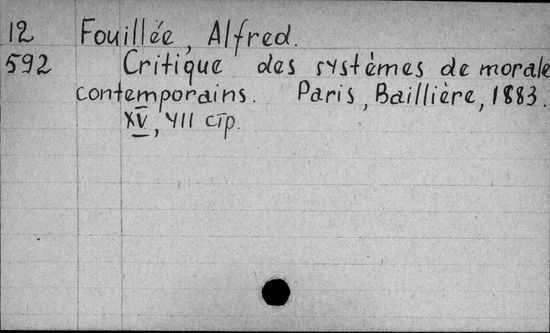 12 Fouillée, Alfred.
592 Critique des systèmes de morale
contemporains. Paris, Baillière, 1883.
XV, 411 стр.